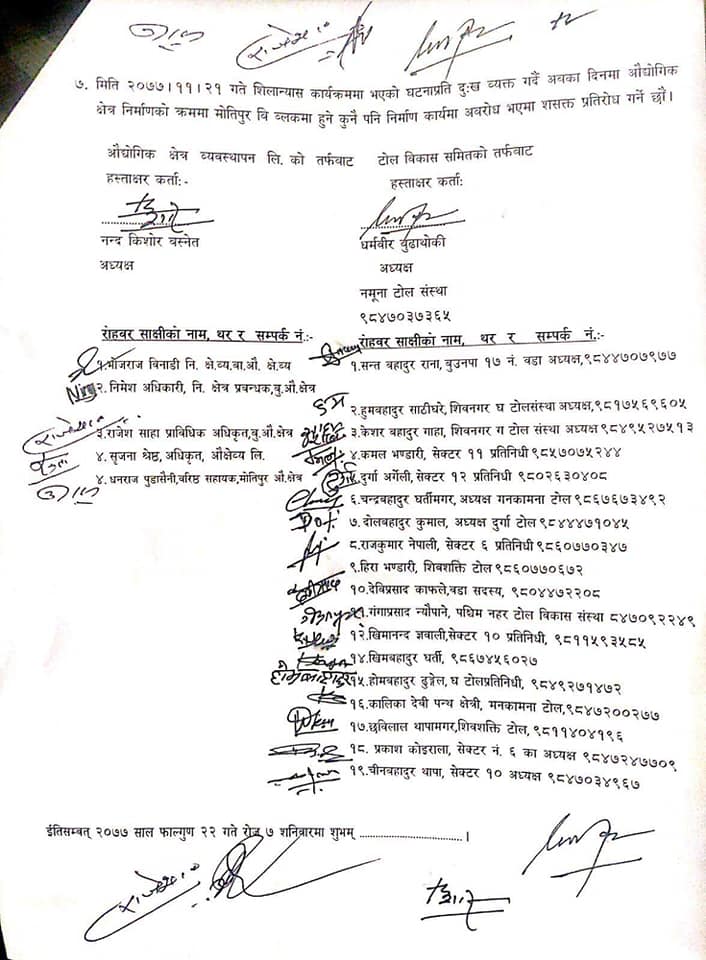 ७. मिति २०७७।११।२१ गते शिलान्यास कार्यक्रममा भएको घटनाप्रति दुःख व्यक्त गर्दै अवका दिनमा औद्योगिक
क्षेत्र निर्माणको क्रममा मोतिपुर वि ब्लकमा हुने कुनै पनि निर्माण कार्यमा अवरोध भएमा शसक्त प्रतिरोध गर्ने छौं।
औद्योगिक क्षेत्र व्यवस्थापन लि. को तर्फवाट
हस्ताक्षर कर्ता:-
नन्द किशोर वस्नेत
अध्यक्ष
टोल विकास समितको तर्फवाट
हस्ताक्षर कर्ता:
धर्मवीर वुढाथोकी
अध्यक्ष
नमूना टोल संस्था
९८४७०३७३६५
रोहवर साक्षीको नाम, थर र सम्पर्क नं:-
१.भोजराज विनाडी नि. क्षे.व्य.वा.औ. क्षे.व्य
२. निमेश अधिकारी, नि. क्षेत्र प्रबन्धक,बु.औ.क्षेत्र
३.राजेश साहा प्राविधिक अधिकृत,बु.औ.क्षेत्र
४. सृजना श्रेष्ठ,अधिकृत, औक्षेव्य लि.
४. धनराज पुडासैनी,वरिष्ठ सहायक,मोतिपुर औ.क्षेत्र
रोहवर साक्षीको नाम, थर र सम्पर्क नं:-
१.सन्त बहादुर राना, बुउनपा १७ नं. वडा अध्यक्ष,९८४४७०७९७७
२.हुमबहादुर साठीघरे, शिवनगर घ टोलसंस्था अध्यक्ष,९८१७५६९६०५
३.केशर बहादुर गाहा, शिवनगर ग टोल संस्था अध्यक्ष ९८४९५२७५१३
४.कमल भण्डारी, सेक्टर ११ प्रतिनिधी ९८५७०७५२४४
दुर्गा अर्गेली, सेक्टर १२ प्रतिनिधी ९८०२६३०४०८
६.चन्द्रबहादुर घर्तीमगर, अध्यक्ष मनकामना टोल ९८६७६७३४९२
७.दोलबहादुर कुमाल, अध्यक्ष दुर्गा टोल ९८४४४७१०४५
८.राजकुमार नेपाली, सेक्टर ६ प्रतिनिधी ९८६०७७०३४७
९.हिरा भण्डारी, शिवशक्ति टोल ९८६०७७०६७२
१०.देविप्रसाद काफले,वडा सदस्य, ९८०४४७२२०८
१.गंगाप्रसाद न्यौपाने, पश्चिम नहर टोल विकास संस्था ८४७०९२२४९
१२.खिमानन्द ज्ञवाली,सेक्टर १० प्रतिनिधी, ९८११५९३५८५
१४.खिमबहादुर घर्ती, ९८६७४५६०२७
१५.होमबहादुर ढुङ्गेल, घ टोलप्रतिनिधी, ९८४९२७१४७२
१६.कालिका देवी पन्थ क्षेत्री, मनकामना टोल,९८४७२००२७७
१७.छविलाल थापामगर,शिवशक्ति टोल,९८११४०४१९६
१८. प्रकाश कोइराला, सेक्टर नं. ६ का अध्यक्ष ९८४७२४७७०९
१९.चीनबहादुर थापा, सेक्टर १० अध्यक्ष ९८४७०३४९६७
ईतिसम्वत् २०७७ साल फाल्गुण २२ गते रोज ७ शनिवारमा शुभम् ........................।